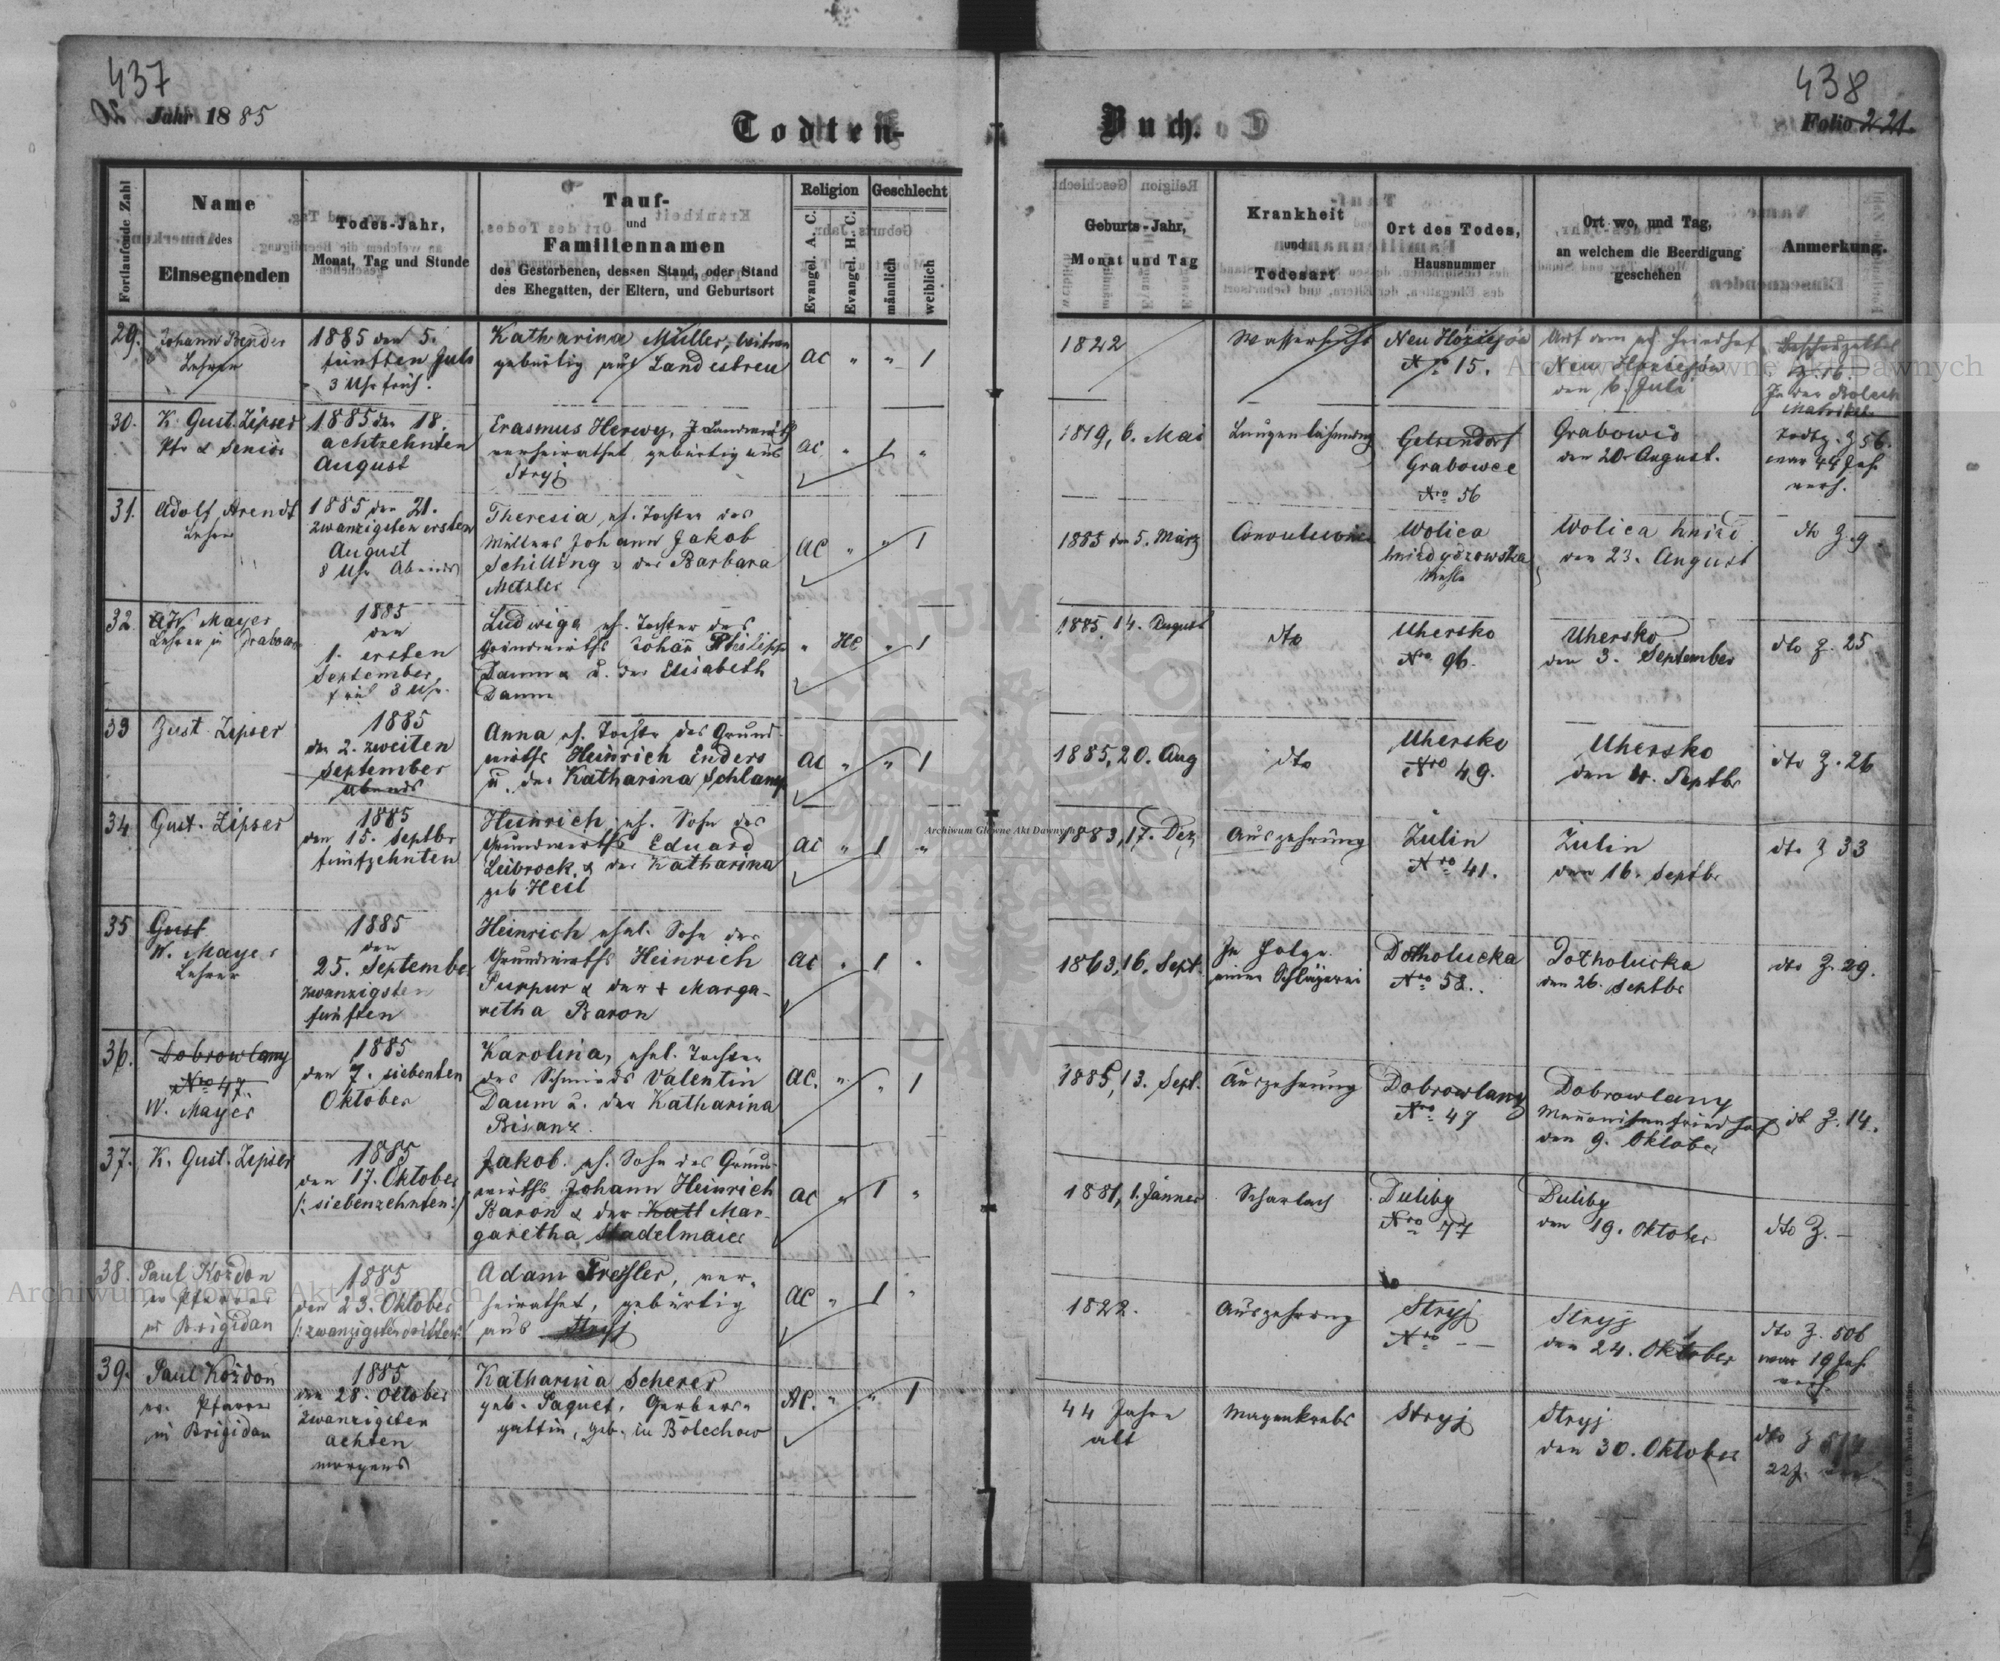 437
Jahr 1885
Todten-
Buch.
438
Folio 221.
Fortlaufende Zahl
Name
des
Einsegnenden
Todes-Jahr,
Monat, Tag und Stunde
Tauf-
und
Familiennamen
des Gestorbenen, dessen Stand, oder Stand
des Ehegatten, der Eltern, und Geburtsort
Religion
Evangel. A. C.
Evangel. H. C.
Geschlecht
männlich
weiblich
Geburts-Jahr,
Monat und Tag
Krankheit
und
Todesart
Ort des Todes,
Hausnummer
Ort wo, und Tag,
an welchem die Beerdigung
geschehen
Anmerkung.
29.
Johann Bender
Lehrer
1885 den 5.
fünften Juli
3 Uhr früh.
Katharina Müller,
gebürtig aus Landestreu
AC " " 1
1822
Wassersucht
Neu
Nro 15.
Auf dem ev. Friedhof
Neu
den 6. Juli
Z. 16.
In der
Matrikel
30.
K. Gust. Zipser
Pfr & Senior
1885 den 18.
achtzehnten
August
Erasmus Herwy,
verheirathet, gebürtig aus
Stryj
AC " 1 "
1819, 6. Mai
Lungenlähmung
Gelsendorf
Grabowce
Nro 56
Grabowce
den 20. August.
Z 56.
war 44 Jah.
verh.
31.
Adolf Arendt
Lehrer
1885 den 21.
zwanzigsten ersten
August
8 Uhr Abends
Theresia, eh. Tochter des
Müllers Johann Jakob
Schilling & der Barbara
Metzler
AC " " 1
1885 den 5. März
Convulsionen
Wolica
hnizdyczowska
Mühle
Wolica hnizd
den 23. August
dto Z. 9
32
W. Mayer
Lehrer in
1885
den
1. ersten
September,
früh 3 Uhr.
Ludwiga eh. Tochter des
Grundwirths Johann Philipp
Daum & u. der Elisabeth
Daum
" HC " 1
1885, 14. August
dto
Uhersko
Nro 96.
Uhersko
den 3. September
dto Z. 25
33
Gust. Zipser
1885
den 2. zweiten
September
abends
Anna eh. Tochter des Grund-
wirths Heinrich Enders
u. der Katharina Schlamp
AC " " 1
1885, 20. Aug
dto
Uhersko
Nro 49.
Uhersko
den 4. Septbr
dto Z. 26
34
Gust. Zipser
1885
den 15. Septbr
fünfzehnten
Heinrich eh. Sohn des
Grundwirths Eduard
Leibrock, & der Katharina
geb Heil
AC " 1 "
1883, 17. Dez
Auszehrung
Zulin
Nro 41.
Zulin
den 16. Septbr
dto Z 33
35
Gust
W. Mayer
Lehrer
1885
den
25. September
zwanzigsten
fünften
Heinrich ehel. Sohn des
Grundwirths Heinrich
Purpur & der + Marga-
retha Baron
AC " 1 "
1863, 16. Sept.
In Folge
einer Schlägerei
Dołholucka
Nro 58.
Dołholucka
den 26. Septbr
dto Z. 29.
36.
Dobrowlany
Nro 47.
W. Mayer
1885
den 7. siebenten
Oktober
Karolina, ehel. Tochter
des Schmieds Valentin
Daum u. der Katharina
Bisanz.
AC. " " 1
1885, 13. Sept.
Auszehrung
Dobrowlany
Nro 47
Dobrowlany
Mennonitenfriedhof
den 9. Oktober
dt Z. 14.
37.
K. Gust. Zipser
1885
den 17. Oktober
(: siebenzehnten :)
Jakob. eh. Sohn des Grund-
wirths Johann Heinrich
Baron & der Kath Mar-
garetha Stadelmaier
AC " 1 "
1881, 1. Jänner
Scharlach
Duliby
Nro 77
Duliby
den 19. Oktober
dto Z. —
38.
Paul Kożdon
ev Pfarrer
in Brigidau
1885
den 23. Oktober
(: zwanzigsten dritten :)
Adam Tressler, ver-
heirathet, gebürtig
aus Stryj
AC " 1 "
1822.
Auszehrung
Stryj
Nro — —
Stryj
den 24. Oktober
dto Z. 506
war 19 Jah.
verh.
39.
Paul Kożdon
ev. Pfarrer
in Brigidau
1885
den 28. October
zwanzigsten
achten
morgens
Katharina Scherer
geb. Paquet, Gerbers-
gattin, geb. in Bolechow
AC. " " 1
44 Jahre
alt
Magenkrebs
Stryj
Stryj
den 30. Oktober
dto Z
22 J.
Archiwum Główne Akt Dawnych
Archiwum Główne Akt Dawnych
Archiwum Główne Akt Dawnych